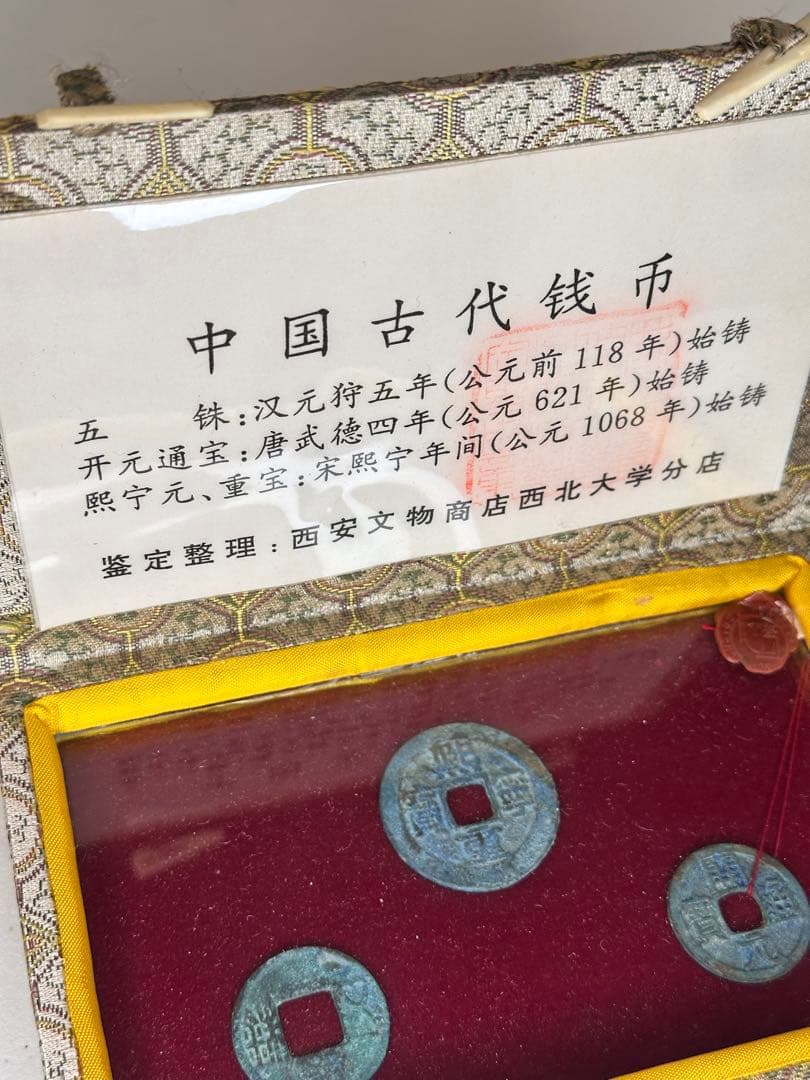 中国古代钱币
五 铢:汉元狩五年(公元前118年)始铸
开元通宝:唐武德四年(公元621年)始铸
熙宁元、重宝:宋熙宁年间(公元1068年)始铸
鉴定整理:西安文物商店西北大学分店
熙寧重寶
開元
五銖